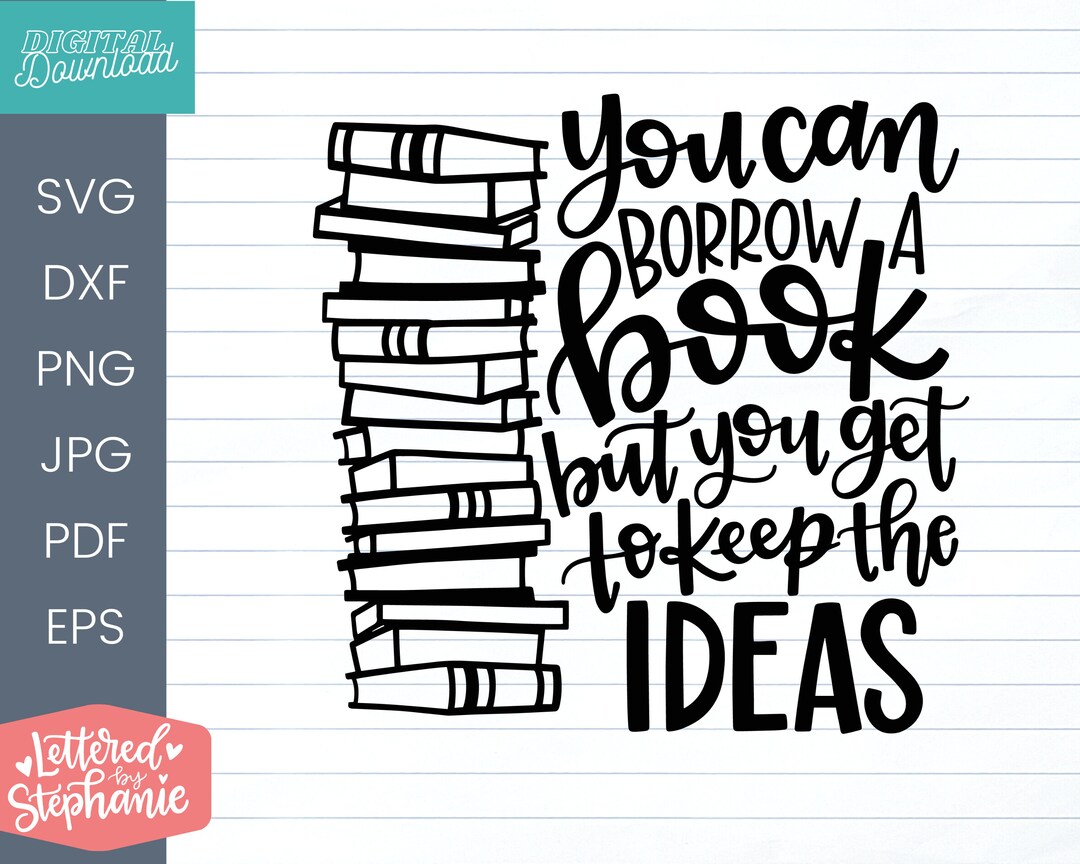 DIGITAL
Download
SVG
DXF
PNG
JPG
PDF
EPS
Lettered
by
Stephanie
you can
BORROW A
book
but you get
to keep the
IDEAS